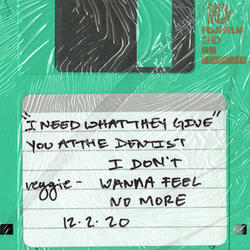 "I NEED WHAT THEY GIVE"
YOU AT THE DENTIST
I DON'T
reggie - WANNA FEEL
NO MORE
12.2.20
2HD